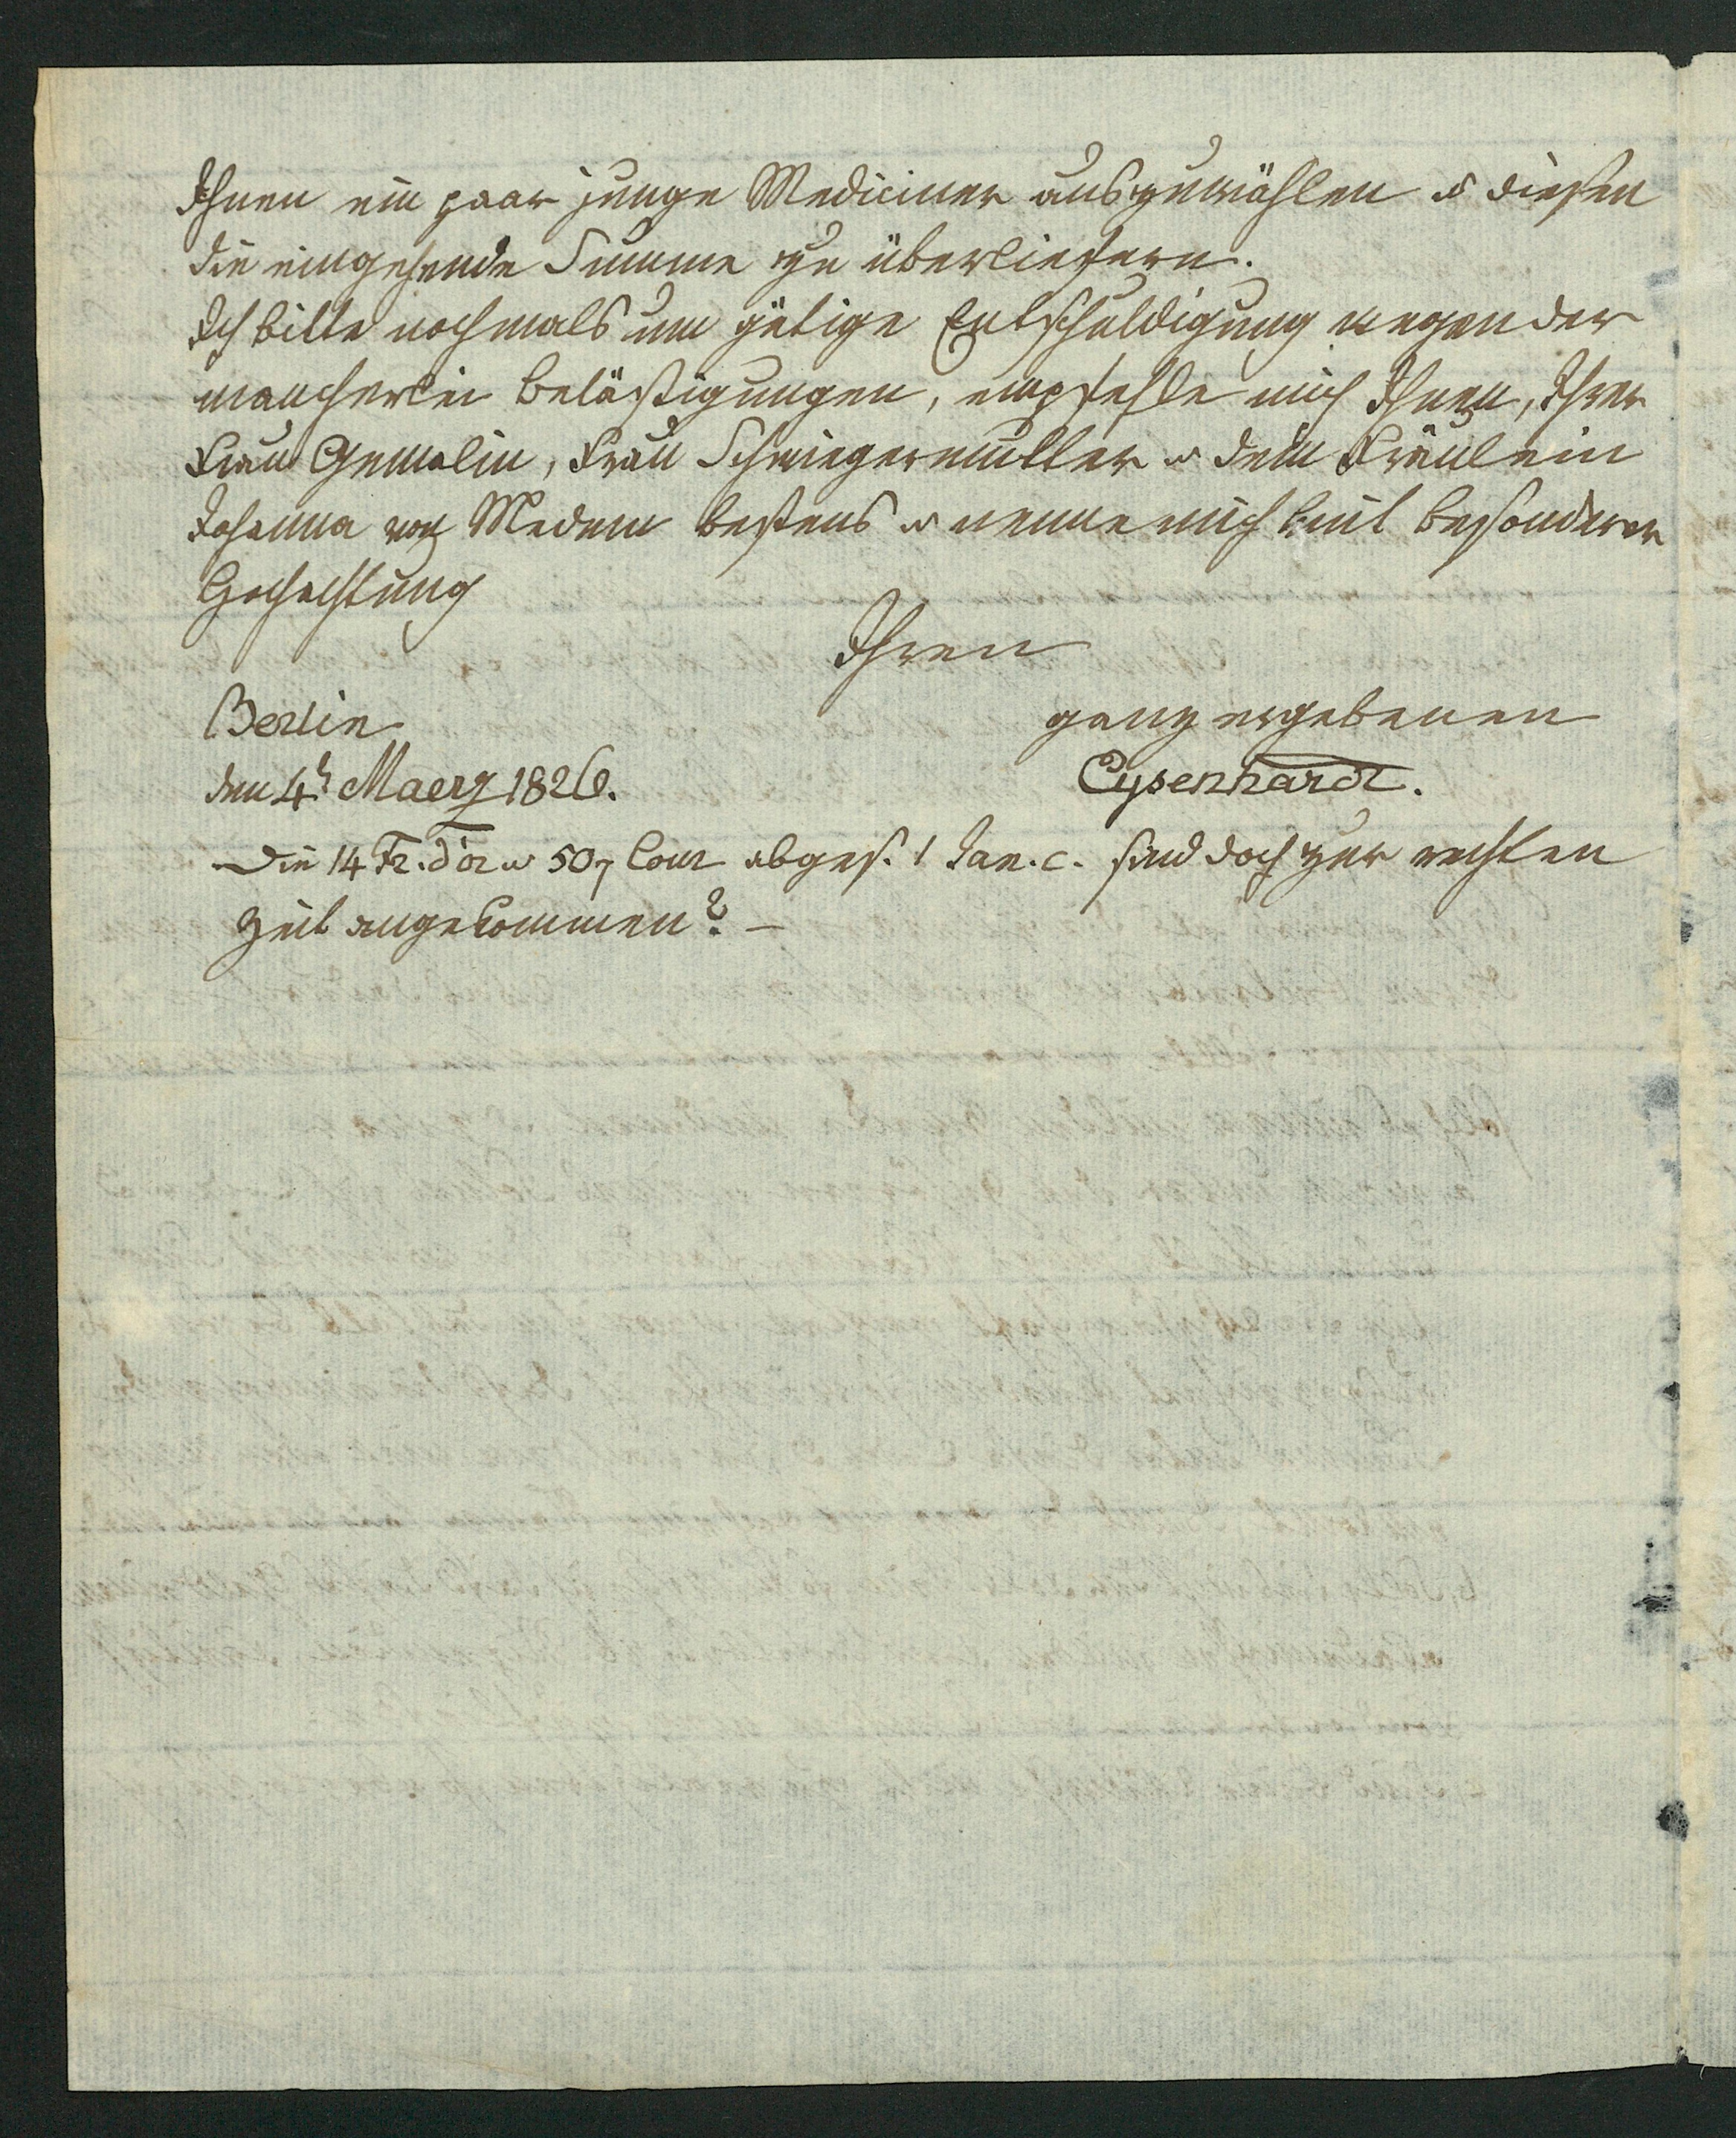 Ihnen ein paar junge Mediciner auszuwählen u diesen
die eingehende Summe zu überliefern.
Ich bitte nochmals um gütige Entschuldigung wegen der
mancherlei Belästigungen, empfehle mich Ihnen, Ihrer
Frau Gemalin, Frau Schwiegermutter u dem Fräulein
Johanna von Medem bestens u nenne mich mit besonderer
Hochachtung
Ihren
Berlin
ganz ergebenen
den 4t Maerz 1826.
Eysenhardt.
Die 14 Fr. d'or u 50 Cour abges. 1 Jan. c. sind doch zur rechten
Zeit angekommen? –